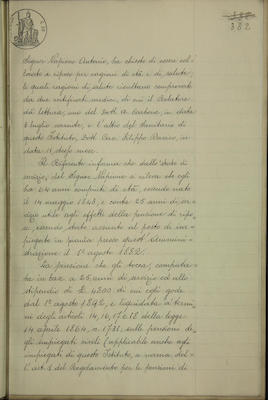 382
382
Signor Napione Antonio, ha chiesto di essere col-
locato a riposo per ragioni di età e di salute,
le quali ragioni di salute risultano comprovate
da due certificati medici, di cui il Relatore
dà lettura, uno del Dott. A. Carbone, in data
luglio corrente, e l'altro del sanitario di
questo Istituto, Dott. Cav. Filippo
data 11, stesso mese.
Il Riferente informa che dallo stato di
servizio, del Signor Napione si rileva ch'egli
ha 64 anni compiuti di età, essendo nato
il 14 maggio 1843, e conta 25 anni di ser-
vizio utile agli effetti della pensione di ripo-
so, essendo stato assunto al posto di im-
piegato in pianta presso quest'Ammini-
strazione il 1° agosto 1882.
La pensione che gli tocca, computa-
ta in base a 25 anni di servizio ed allo
stipendio di L. 4300 di cui egli gode
dal 1° agosto 1892, e liquidata a termi-
ni degli articoli 14, 16, 17 e 18 della legge
14 aprile 1864, n. 1731, sulle pensioni de-
gli impiegati civili (applicabile anche agli
impiegati di questo Istituto, a norma del-
l'art. 1 del Regolamento per le pensioni di